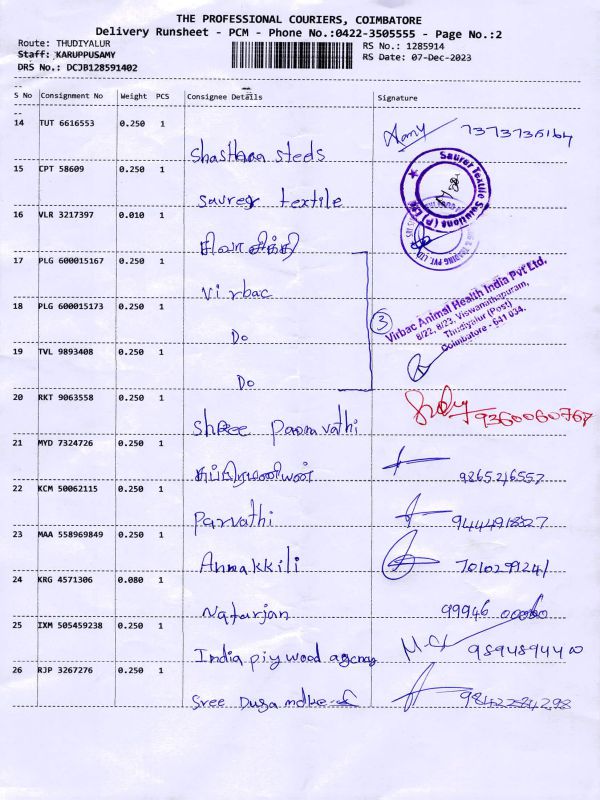 THE PROFESSIONAL COURIERS, COIMBATORE
Delivery Runsheet - PCM - Phone No.:0422-3505555 - Page No.:2
Route: THUDIYALUR
Staff: KARUPPUSAMY
DRS No.: DCJB128591402
RS No.: 1285914
RS Date: 07-Dec-2023
S No Consignment No Weight PCS Consignee Details Signature
14 TUT 6616553 0.250 1
Shasthaa steds
15 CPT 58609 0.250 1
Saurer textile
Saurer Textile Solutions (P) Ltd
16 VLR 3217397 0.010 1
17 PLG 600015167 0.250 1
Virbac
18 PLG 600015173 0.250 1
Do
3
Virbac Animal Health India Pvt Ltd,
8/22, 8/23, Viswanathapuram,
Thudiyalur (Post)
Coimbatore - 641 034.
19 TVL 9893408 0.250 1
Do
20 RKT 9063558 0.250 1
Shree Paravathi 9360060767
21 MYD 7324726 0.250 1
9865216557
22 KCM 50062115 0.250 1
Parvathi 9444918827
23 MAA 558969849 0.250 1
Annakkili 70102991241
24 KRG 4571306 0.080 1
Natarjan 99946
25 IXM 505459238 0.250 1
India plywood agency 9894894400
26 RJP 3267276 0.250 1
Sree Duga 9842284298